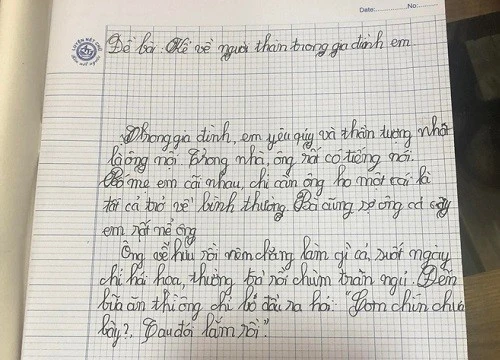 Date: No:
LUYỆN NÉT CHỮ
RÈN NẾT NGƯỜI
Đề bài: Kể về người thân trong gia đình em
Trong gia đình, em yêu qúy và thần tượng nhất
là ông nội. Trong nhà, ông rất có tiếng nói.
Bố mẹ em cãi nhau, chỉ cần ông ho một cái là
tất cả trở về bình thường. Bà cũng sợ ông cơ
em rất nể ông
Ông về hưu rồi nên chẳng làm gì cả, suốt ngày
chỉ hái hoa, thưởng trà rồi chùm trăn ngủ. Đến
bữa ăn thì ông chỉ bỏ đầu ra hỏi: "Cơm chín chưa
bây?, Tau đói lắm rồi".